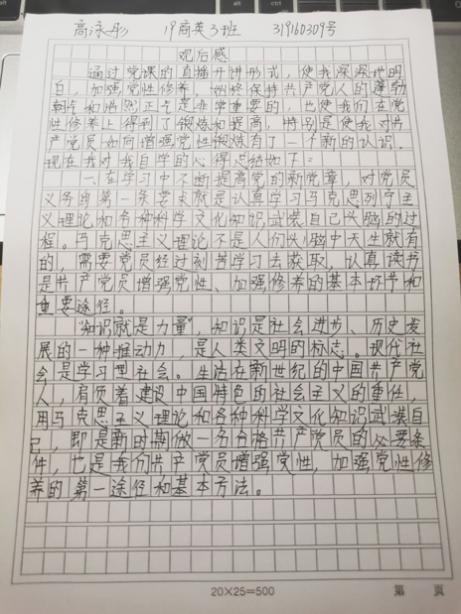 高泳彤 19商英3班 319160309号
观后感
通过党课的直播开讲形式，使我深深地明
白，加强党性修养，始终保持共产党人的蓬勃
朝气 正气是非常重要的，也使我们在党
性修养上得到了锻炼和提高，特别是使我对共
产党员如何增强党性锻炼有了一个新的认识。
现在我对我自学的心得总结如下：
一、在学习中不断提高党的新党章，对党员
义务的第一条要求就是认真学习马克思列宁主
义理论和各种科学文化知识武装自己头脑的过
程。马克思主义理论不是人们头脑中天生就有
的，需要党员经过刻苦学习去获取，认真读书
是共产党员增强党性、加强修养的基本环节和
重要途径。
“知识就是力量”，知识是社会进步、历史发
展的一种推动力，是人类文明的标志。现代社
会是学习型社会。生活在新世纪的中国共产党
人，肩负着建设中国特色的社会主义的重任，
用马克思主义理论和各种科学文化知识武装自
己，即是新时期做一名合格共产党员的必要条
件，也是我们共产党员增强党性，加强党性修
养的第一途径和基本方法。
20×25=500 第 页